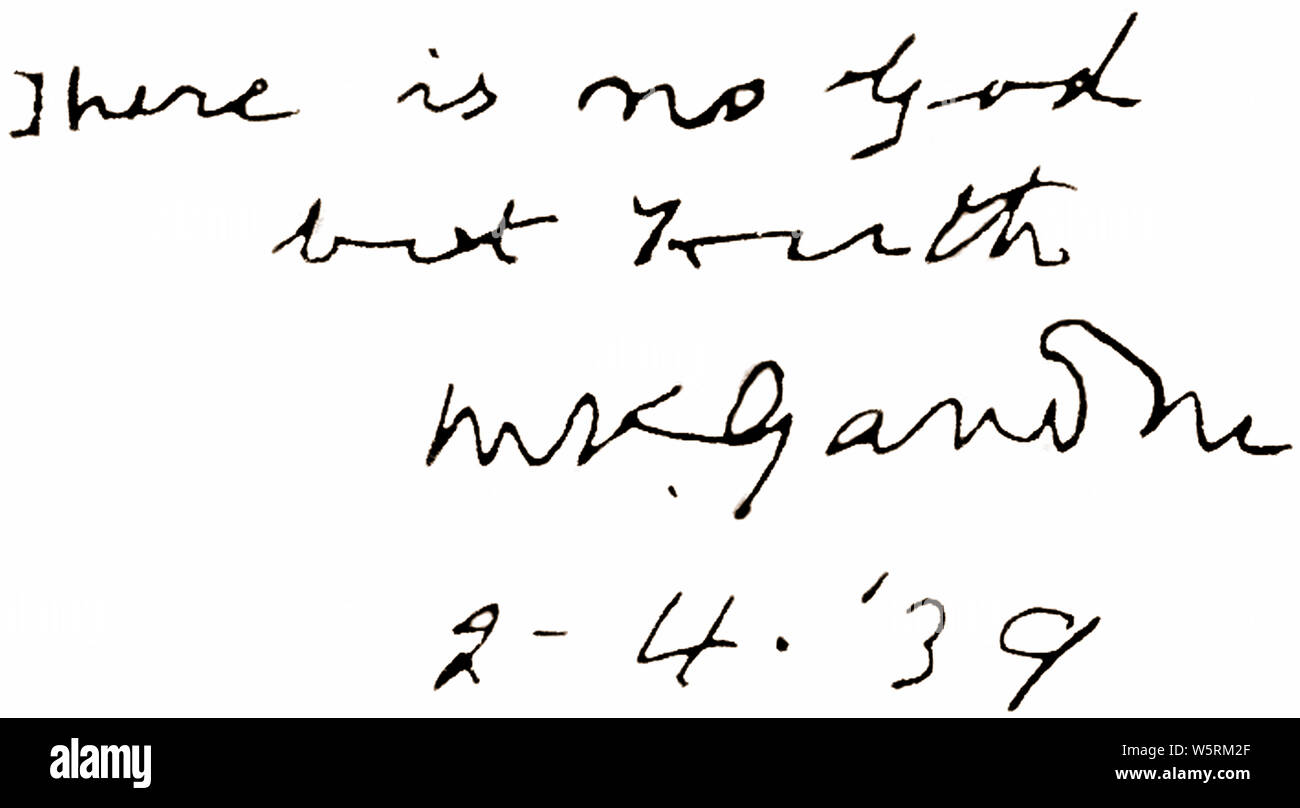 There is no God
but Truth
MKGandhi
2-4.'39
alamy
Image ID: W5RM2F
www.alamy.com